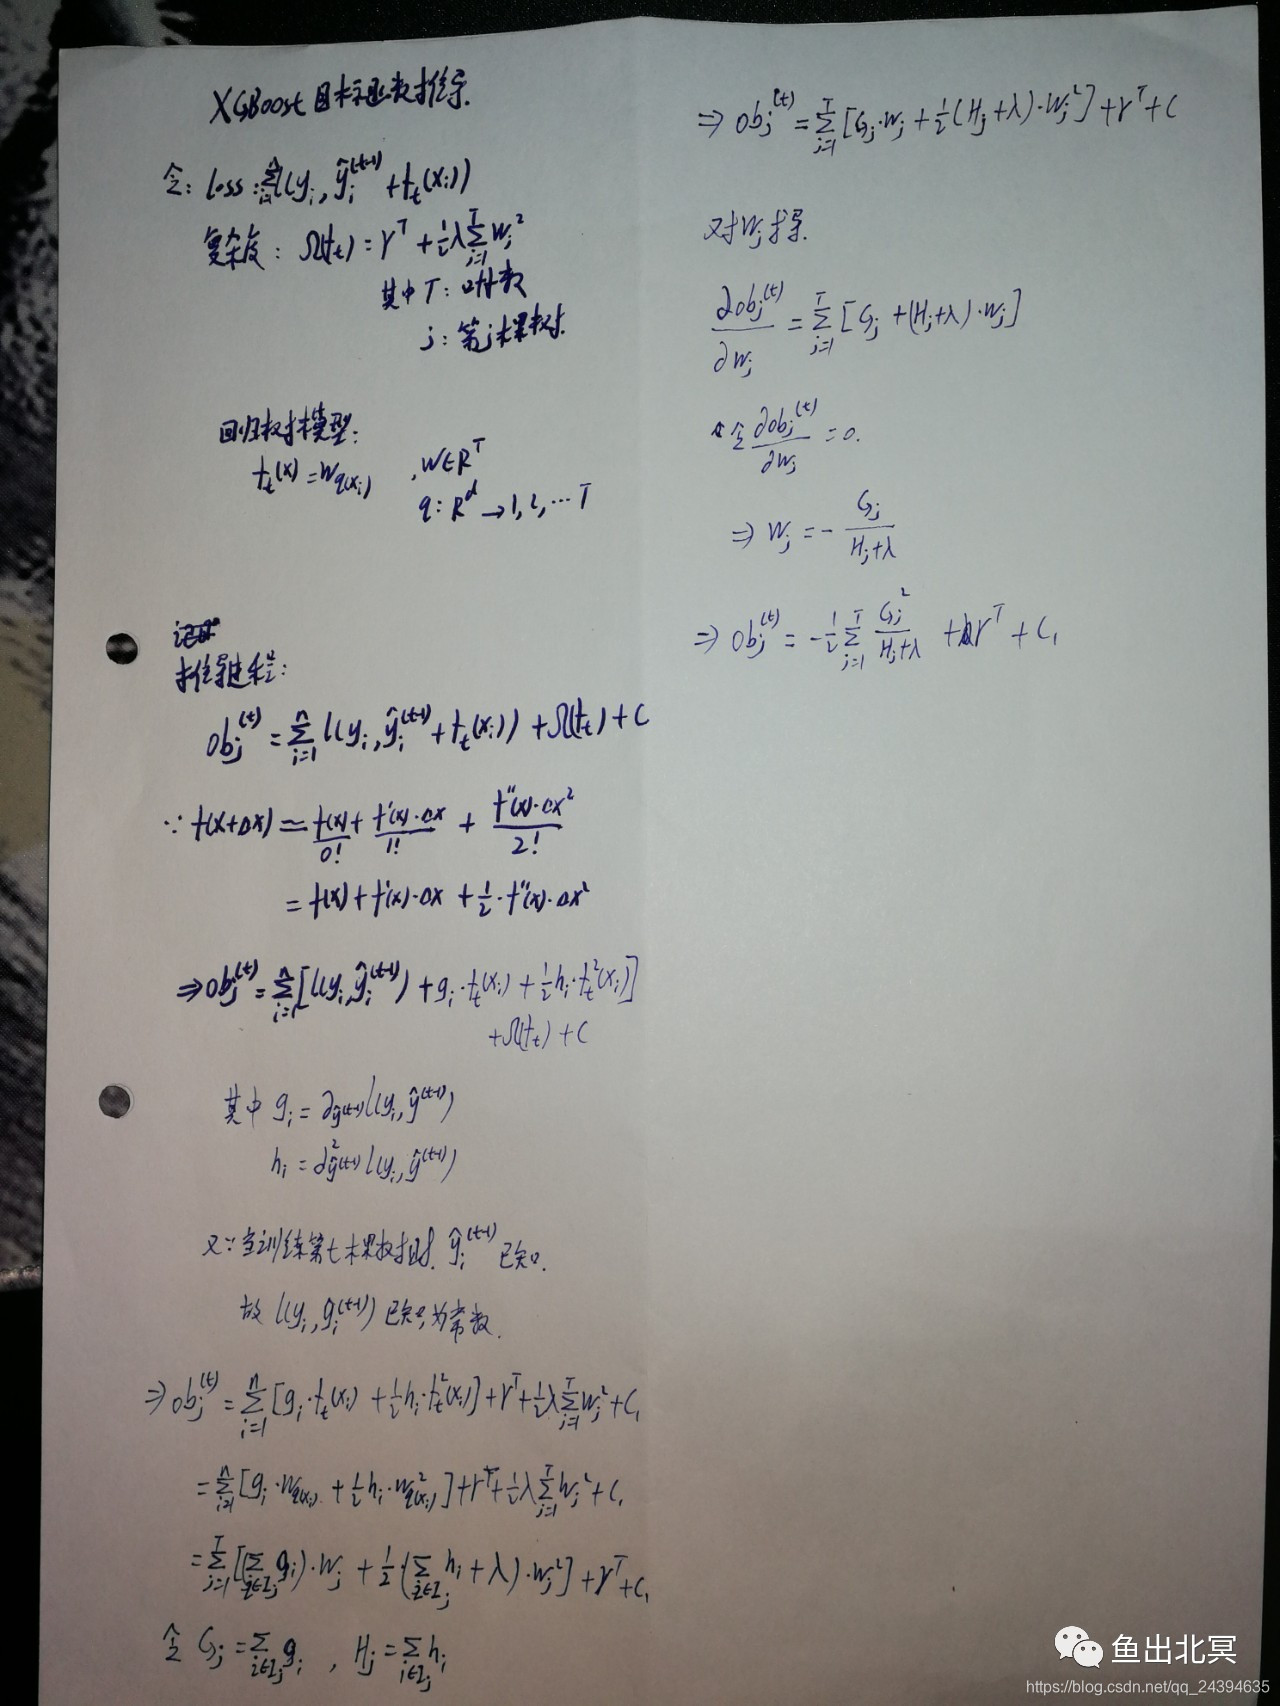 XGBoost 目标函数推导.
令: loss: Σ_{i=1}^{n} l(y_i, ŷ_i^{(t-1)} + f_t(x_i))
复杂度: Ω(f_t) = γ^T + ½λ Σ_{j=1}^{T} w_j^2
其中 T: 叶数
j: 第j棵树.
回归树模型:
f_t(x) = w_{q(x_i)} , w∈R^T
q: R^d → 1, 2, … T
推导过程:
obj^{(t)} = Σ_{i=1}^{n} l(y_i, ŷ_i^{(t-1)} + f_t(x_i)) + Ω(f_t) + C
∵ f(x+Δx) ≃ f(x)/0! + f'(x)·Δx/1! + f''(x)·Δx^2/2!
= f(x) + f'(x)·Δx + ½·f''(x)·Δx^2
⇒ obj^{(t)} = Σ_{i=1}^{n} [l(y_i, ŷ_i^{(t-1)}) + g_i·f_t(x_i) + ½h_i·f_t^2(x_i)]
+ Ω(f_t) + C
其中 g_i = ∂_{ŷ^{(t-1)}} l(y_i, ŷ^{(t-1)})
h_i = ∂^2_{ŷ^{(t-1)}} l(y_i, ŷ^{(t-1)})
又∵当训练第t棵树时. ŷ_i^{(t-1)} 已知.
故 l(y_i, ŷ_i^{(t-1)}) 已知,为常数.
⇒ obj^{(t)} = Σ_{i=1}^{n} [g_i·f_t(x_i) + ½h_i·f_t^2(x_i)] + γ^T + ½λ Σ_{j=1}^{T} w_j^2 + C_1
= Σ_{i=1}^{n} [g_i·w_{q(x_i)} + ½h_i·w_{q(x_i)}^2] + γ^T + ½λ Σ_{j=1}^{T} w_j^2 + C_1
= Σ_{j=1}^{T} [(Σ_{i∈I_j} g_i)·w_j + ½(Σ_{i∈I_j} h_i + λ)·w_j^2] + γ^T + C_1
令 G_j = Σ_{i∈I_j} g_i , H_j = Σ_{i∈I_j} h_i
⇒ obj^{(t)} = Σ_{j=1}^{T} [G_j·w_j + ½(H_j+λ)·w_j^2] + γ^T + C
对w_j求导.
∂obj^{(t)}/∂w_j = Σ_{j=1}^{T} [G_j + (H_j+λ)·w_j]
令 ∂obj^{(t)}/∂w_j = 0.
⇒ w_j = - G_j/(H_j+λ)
⇒ obj^{(t)} = -½ Σ_{j=1}^{T} G_j^2/(H_j+λ) + γ^T + C_1
鱼出北冥
https://blog.csdn.net/qq_24394635